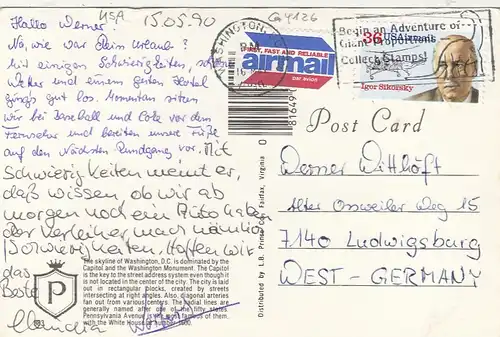 USA 15.05.90
Hallo Werner!
Na, wie war Dein Urlaub?
Mit einigen Schwierigkeiten,
Wetter und einem geilen Hotel
ging's gut los. Momentan sitzen
wir bei Baseball und Cola vor dem
Fernseher und bereiten unsere Füße
auf den Nächsten Rundgang vor. Mit
Schwierigkeiten meint er,
daß wissen, ob wir ab
morgen noch ein Auto haben
der Verleiher macht nämlich
Schwierigkeiten. Hoffen wir
das
Beste
Claudia
P
The skyline of Washington, D.C. is dominated by the
Capitol and the Washington Monument. The Capitol
is the key to the street address system even though it
is not located in the center of the city. The city is laid
out in rectangular plocks, created by streets
intersecting at right angles. Also, diagonal arteries
fan out from various centers. The radial lines are
generally named after one of the fifty states.
Pennsylvania Avenue is the most famous of them,
with the White House at number 1600.
Distributed by L.B. Prince Co., Fairfax, Virginia
81649
WASHINGTON
FIRST, FAST AND RELIABLE
airmail
par avion
Begin an Adventure of
Giant Proportions
Collect Stamps!
36 USAirmail
Igor Sikorsky
Post Card
Werner Witthöft
Alter Ossweiler Weg 15
7140 Ludwigsburg
WEST-GERMANY